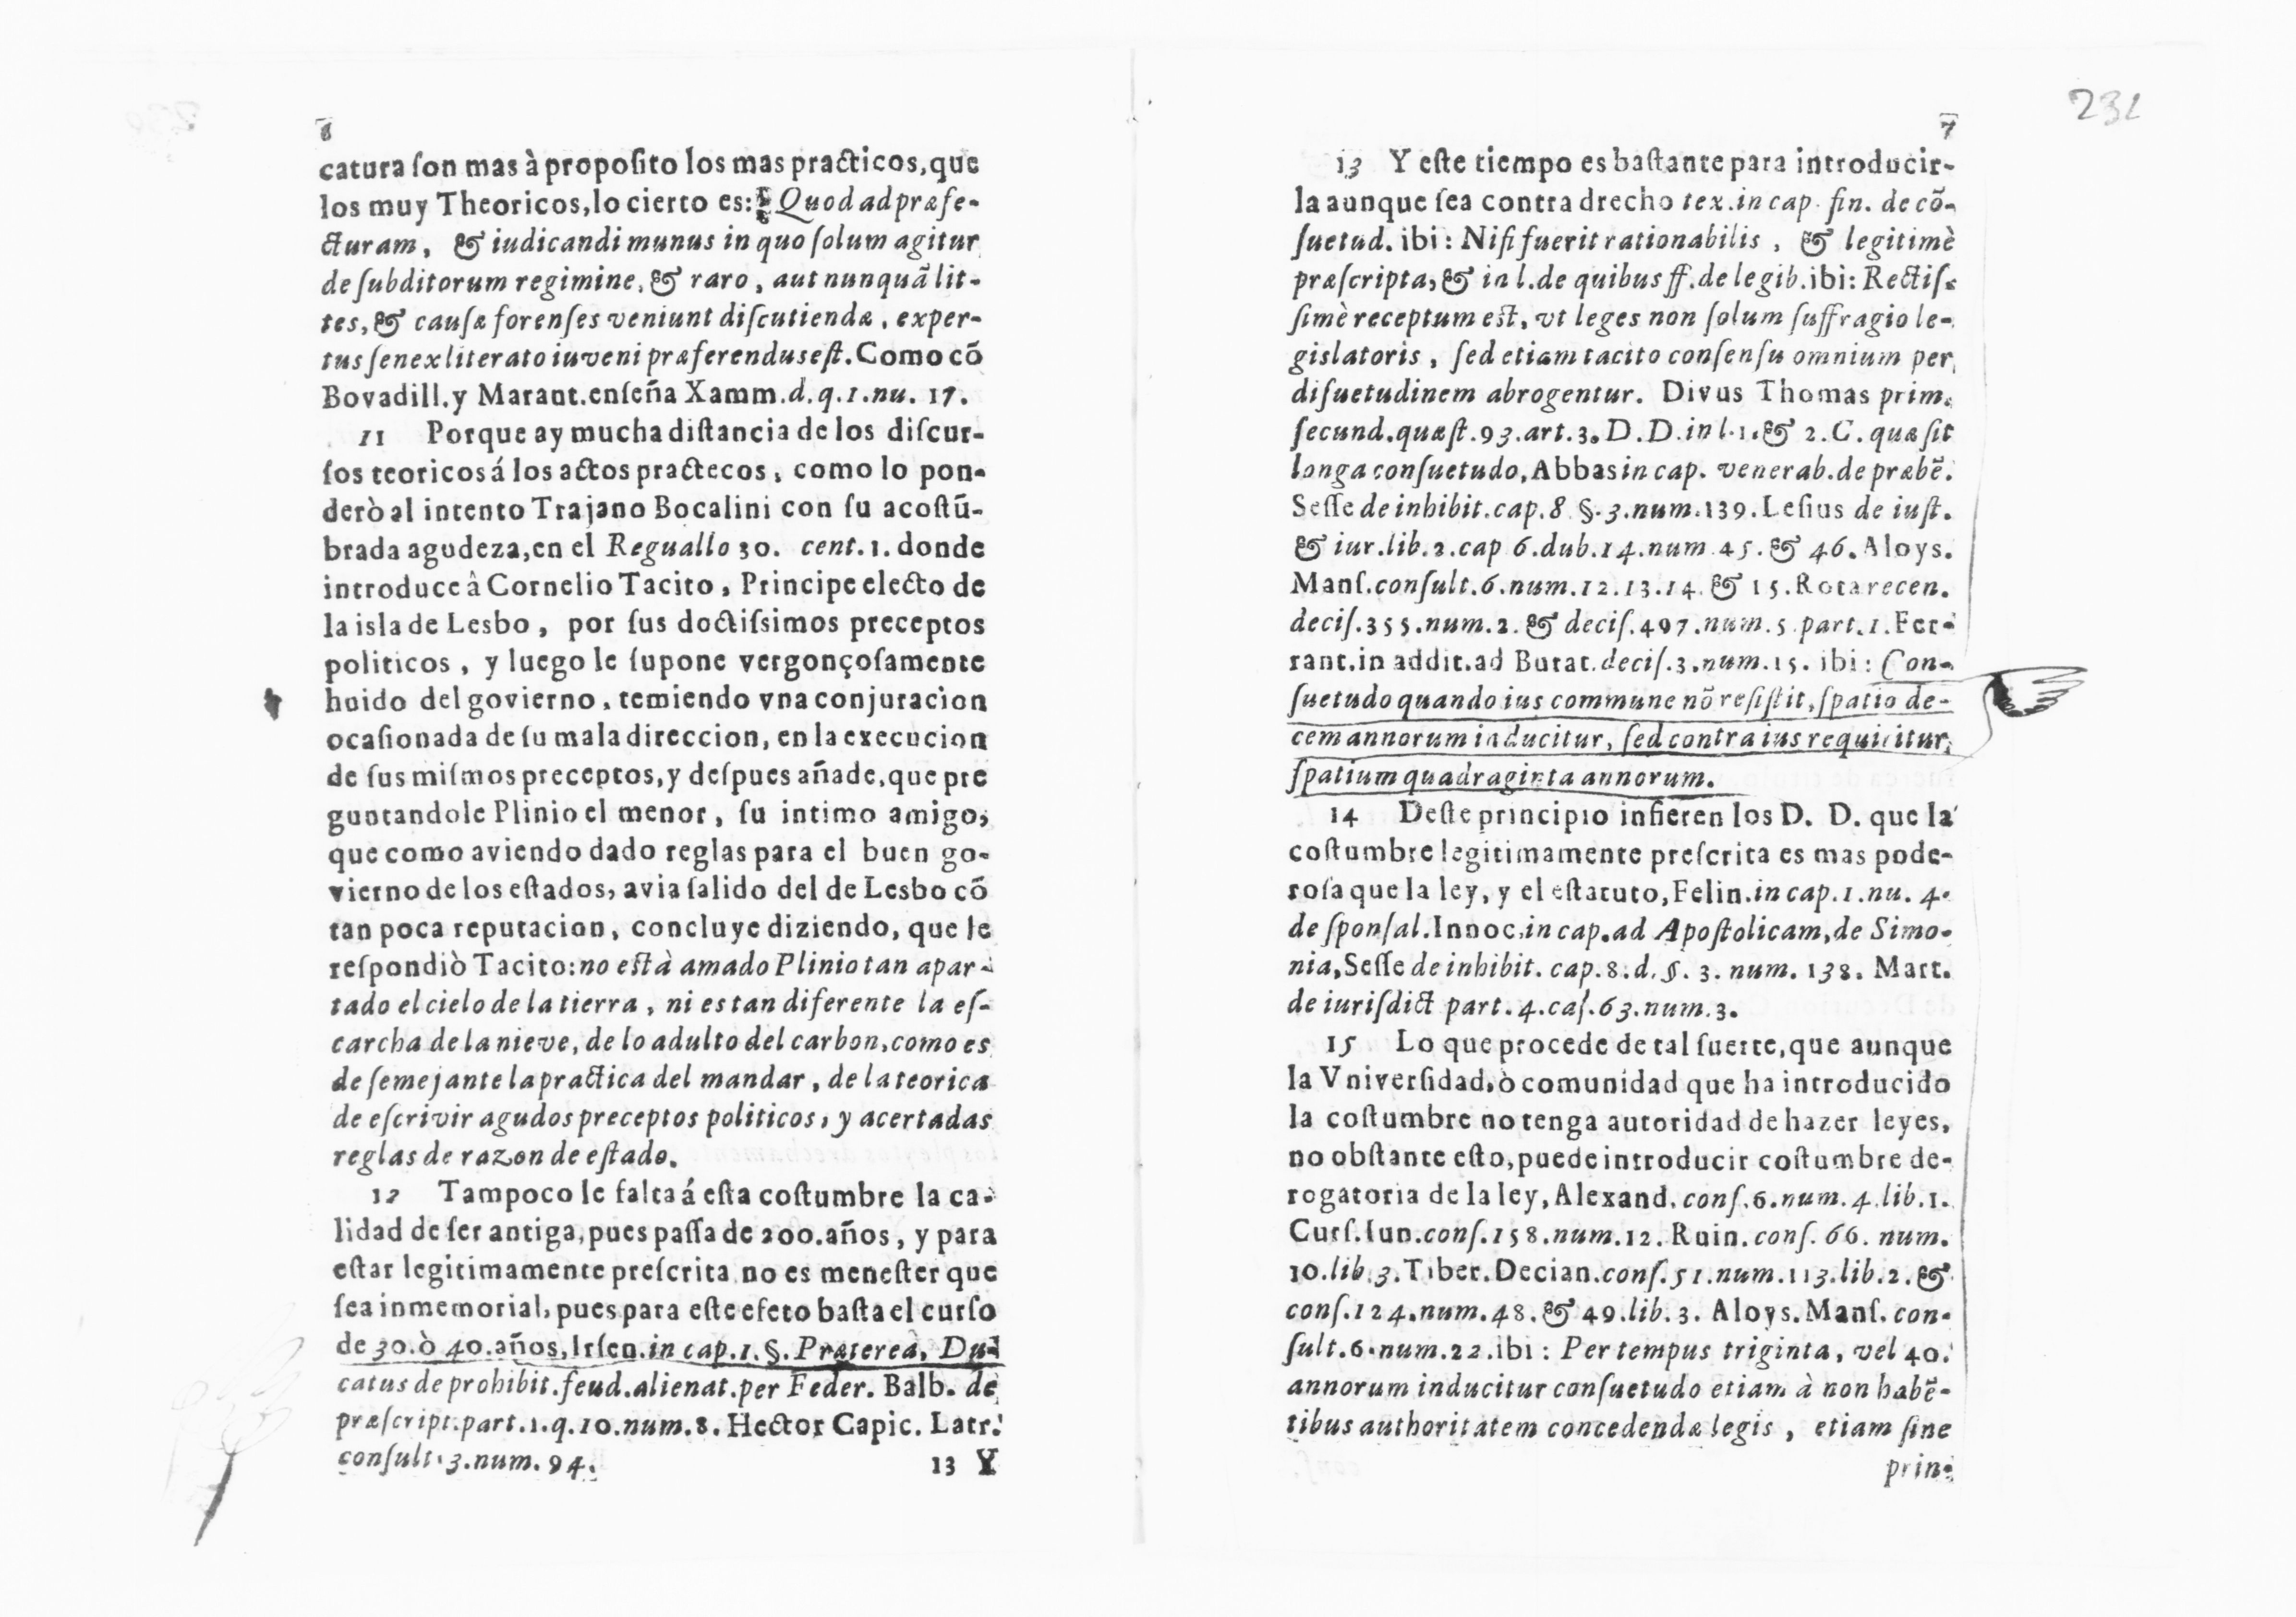 8
catura ſon mas à propoſito los mas practicos, que
los muy Theoricos, lo cierto es: Quod ad præfe-
cturam, & iudicandi munus in quo ſolum agitur
de ſubditorum regimine, & raro, aut nunquã lit-
tes, & cauſæ forenſes veniunt diſcutiendæ, exper-
tus ſenex literato iuveni præferendus eſt. Como cõ
Bovadill. y Marant. enſeña Xamm. d. q. 1. nu. 17.
11 Porque ay mucha diſtancia de los diſcur-
ſos teoricos á los actos practecos, como lo pon-
derò al intento Trajano Bocalini con ſu acoſtũ-
brada agudeza, en el Reguallo 30. cent. 1. donde
introduce â Cornelio Tacito, Principe electo de
la isla de Lesbo, por ſus doctiſsimos preceptos
politicos, y luego le ſupone vergonçoſamente
huido del govierno, temiendo vna conjuracion
ocaſionada de ſu mala direccion, en la execucion
de ſus miſmos preceptos, y deſpues añade, que pre
guntandole Plinio el menor, ſu intimo amigo,
que como aviendo dado reglas para el buen go-
vierno de los eſtados, avia ſalido del de Lesbo cõ
tan poca reputacion, concluye diziendo, que le
reſpondiò Tacito: no eſtà amado Plinio tan apar-
tado el cielo de la tierra, ni es tan diferente la eſ-
carcha de la nieve, de lo adulto del carbon, como es
de ſemejante la practica del mandar, de la teorica
de eſcrivir agudos preceptos politicos, y acertadas
reglas de razon de eſtado.
12 Tampoco le falta á eſta coſtumbre la ca-
lidad de ſer antiga, pues paſſa de 200. años, y para
eſtar legitimamente preſcrita no es meneſter que
ſea inmemorial, pues para eſte efeto baſta el curſo
de 30. ò 40. años, Irſen. in cap. 1. §. Præterea, Du-
catus de prohibit. feud. alienat. per Feder. Balb. de
præſcript. part. 1. q. 10. num. 8. Hector Capic. Latr.
conſult. 3. num. 94.
13 Y
231
7
13 Y eſte tiempo es baſtante para introducir-
la aunque ſea contra drecho tex. in cap. fin. de cõ-
ſuetud. ibi: Niſi fuerit rationabilis, & legitimè
præſcripta, & in l. de quibus ff. de legib. ibi: Rectiſ-
ſimè receptum eſt, vt leges non ſolum ſuffragio le-
gislatoris, ſed etiam tacito conſenſu omnium per
diſuetudinem abrogentur. Divus Thomas prim.
ſecund. quæſt. 93. art. 3. D. D. in l. 1. & 2. C. quæ ſit
longa conſuetudo, Abbas in cap. venerab. de præbẽ.
Seſſe de inhibit. cap. 8 §. 3. num. 139. Leſius de iuſt.
& iur. lib. 2. cap 6. dub. 14. num 45. & 46. Aloys.
Manſ. conſult. 6. num. 12. 13. 14. & 15. Rota recen.
deciſ. 355. num. 2. & deciſ. 497. num. 5 part. 1. Fer-
rant. in addit. ad Burat. deciſ. 3. num. 15. ibi: Con-
ſuetudo quando ius commune nõ reſiſtit, ſpatio de-
cem annorum inducitur, ſed contra ius requiritur,
ſpatium quadraginta annorum.
14 Deſte principio infieren los D. D. que la
coſtumbre legitimamente preſcrita es mas pode-
roſa que la ley, y el eſtatuto, Felin. in cap. 1. nu. 4.
de ſponſal. Innoc. in cap. ad Apoſtolicam, de Simo-
nia, Seſſe de inhibit. cap. 8. d. §. 3. num. 138. Mart.
de iuriſdict part. 4. caſ. 63. num. 3.
15 Lo que procede de tal ſuerte, que aunque
la Vniverſidad, ò comunidad que ha introducido
la coſtumbre no tenga autoridad de hazer leyes,
no obſtante eſto, puede introducir coſtumbre de-
rogatoria de la ley, Alexand. conſ. 6. num. 4. lib. 1.
Curſ. Iun. conſ. 158. num. 12. Ruin. conſ. 66. num.
10. lib. 3. Tiber. Decian. conſ. 51. num. 113. lib. 2. &
conſ. 124. num. 48. & 49. lib. 3. Aloys. Manſ. con-
ſult. 6. num. 22. ibi: Per tempus triginta, vel 40.
annorum inducitur conſuetudo etiam à non habẽ-
tibus authoritatem concedendæ legis, etiam ſine
prin-